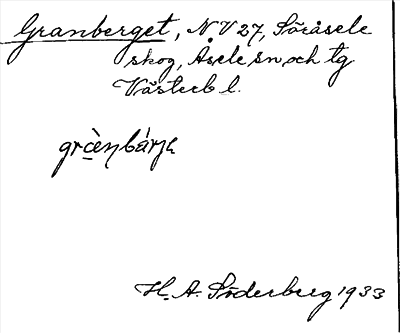 Granberget, N V 27, Söråsele
skog, Åsele sn och tg
Västerb l.
H. A. Söderberg 1933